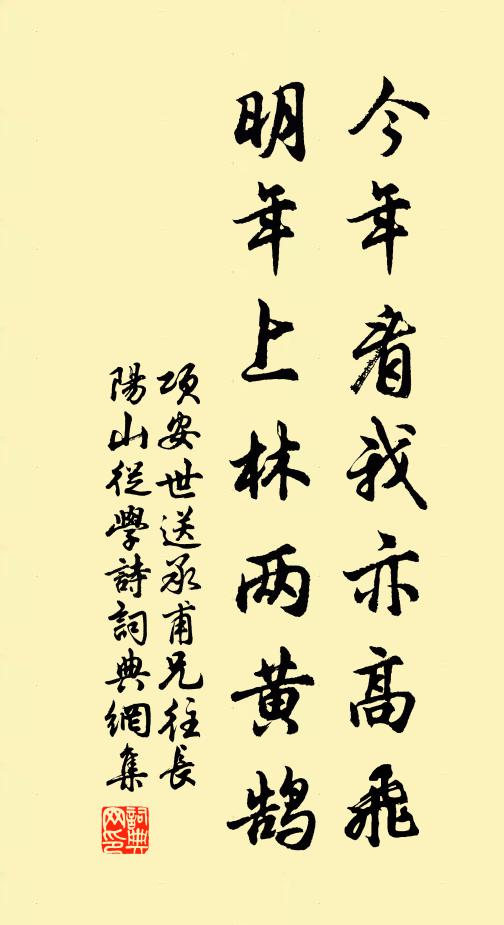 今年看我亦高飛
明年上林两黄鹄
項安世送承甫兄往長
陽山從學詩詞典網集
詞典网印